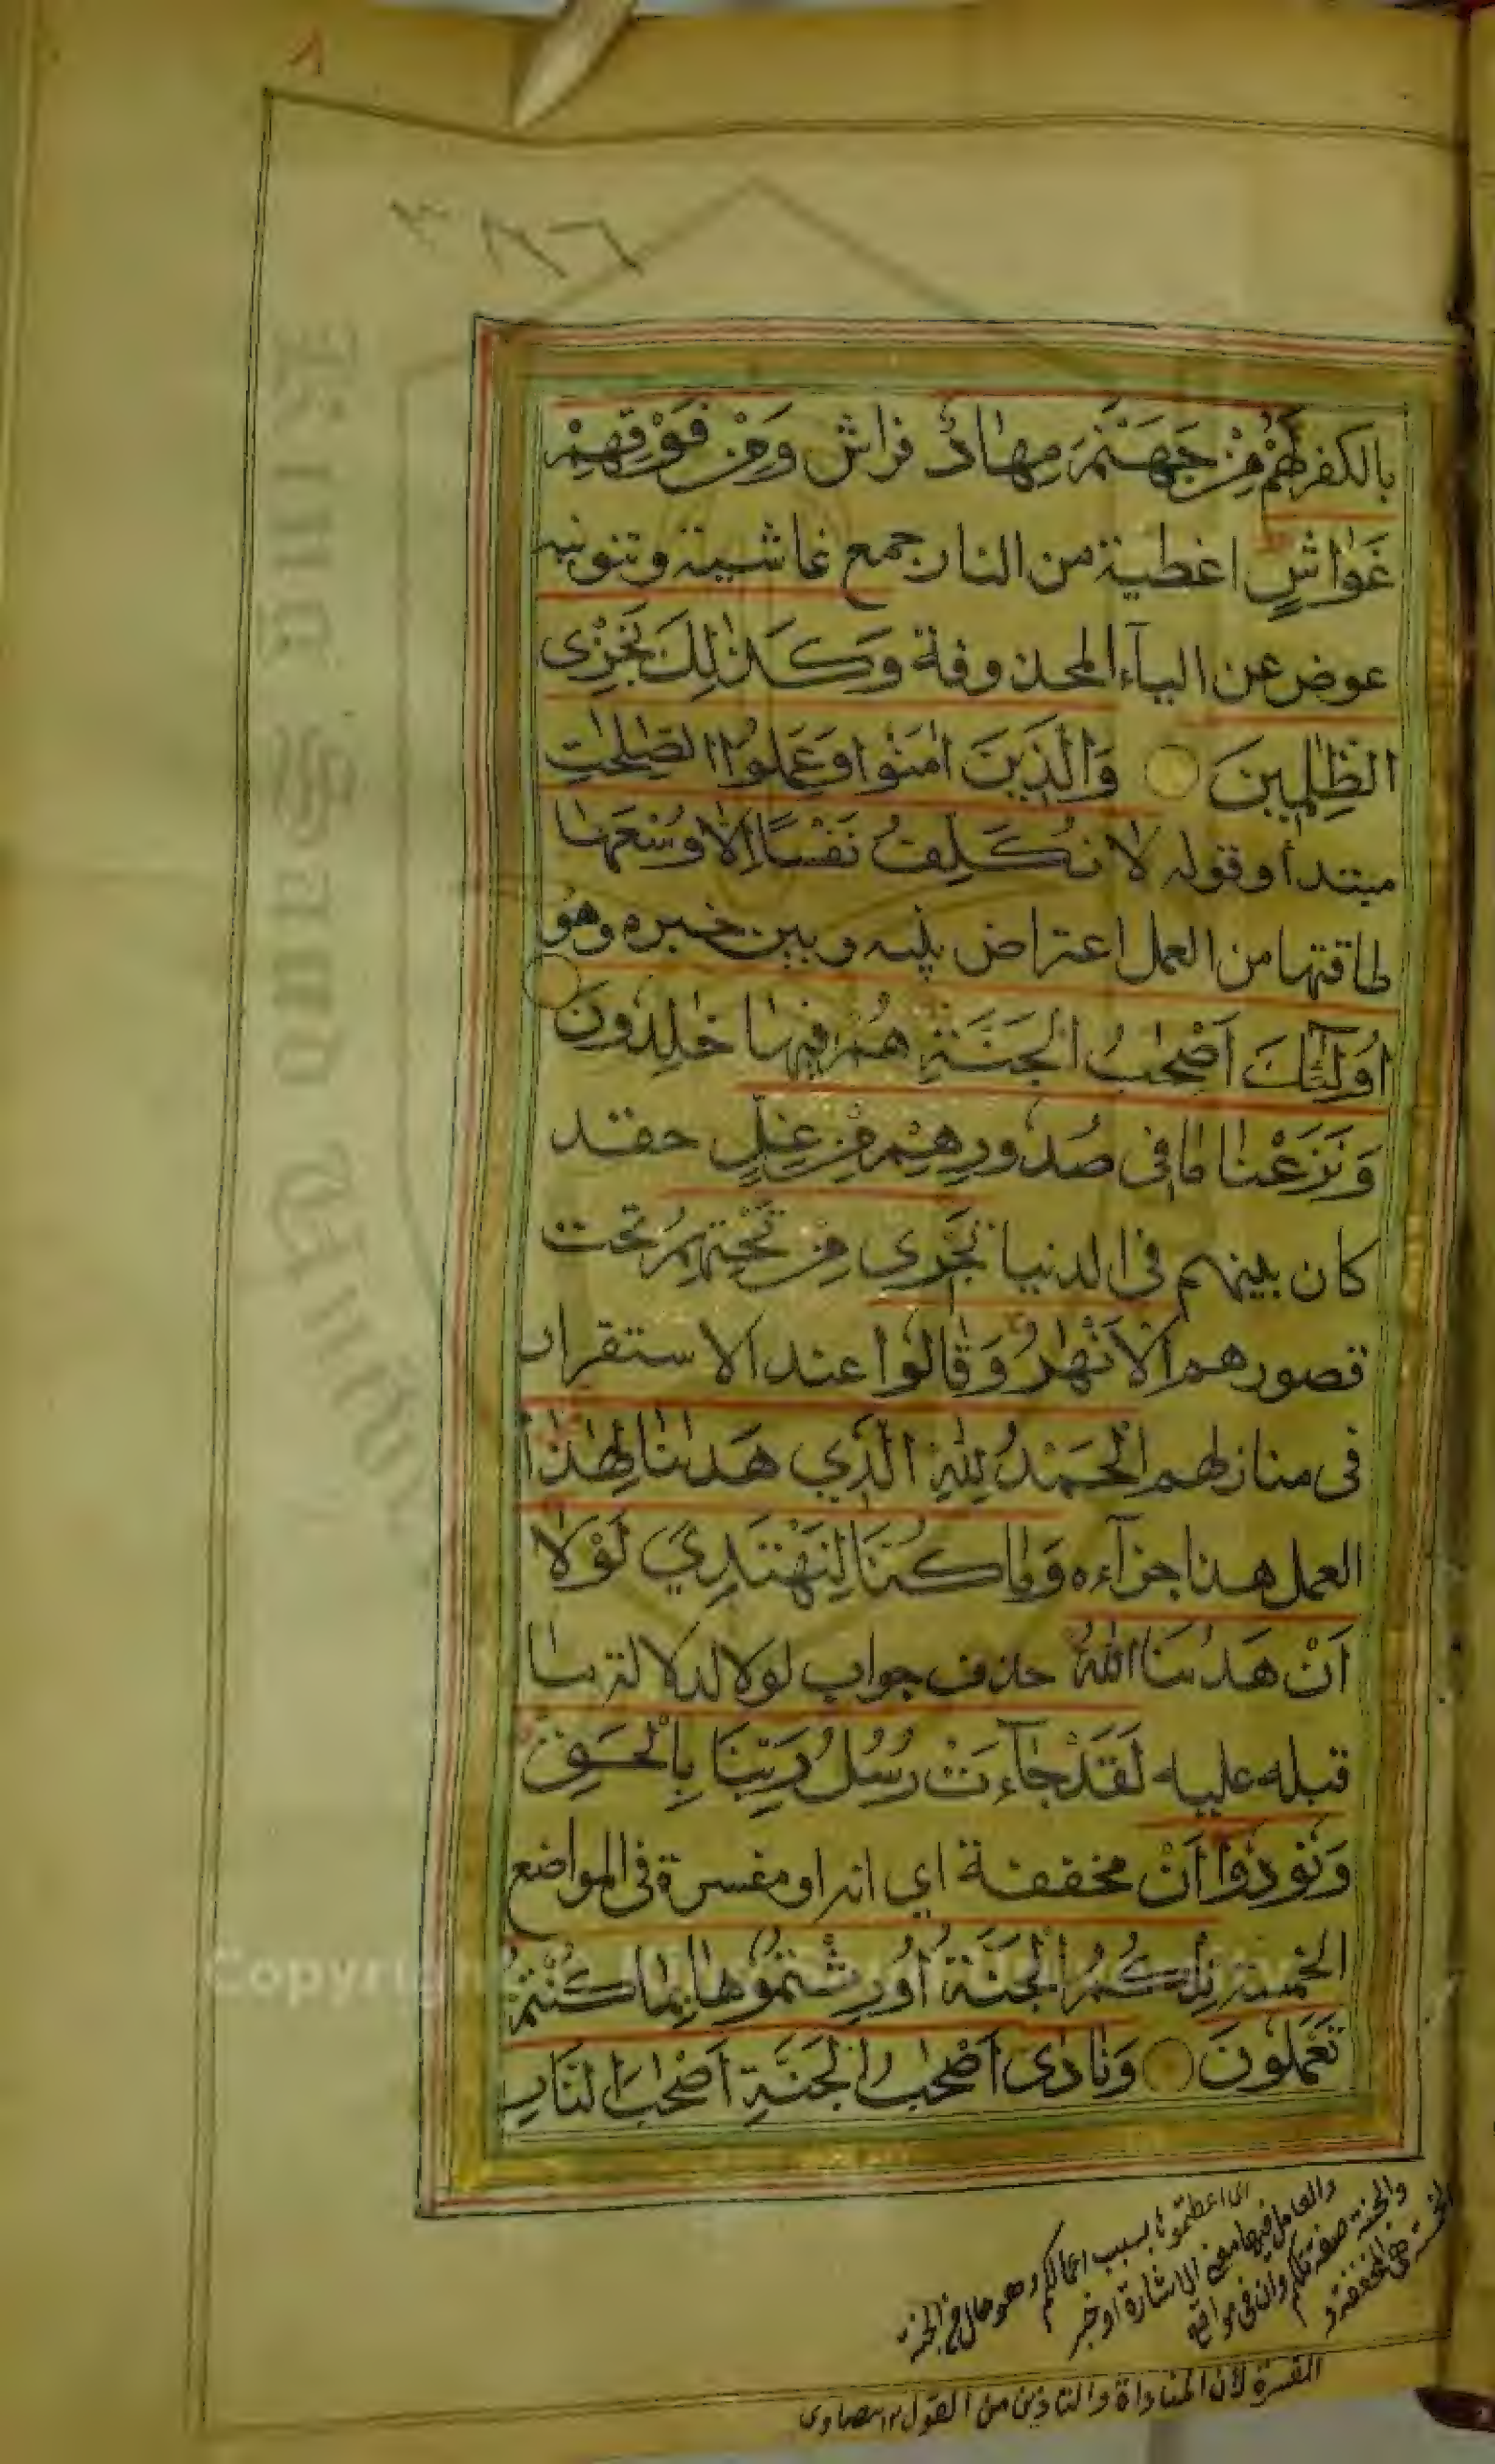 ٨
بالكفر لَهُمْ مِّنْ جَهَنَّمَ مِهَادٌ فراش وَمِنْ فَوْقِهِمْ
غَوَاشٍ اغطية من النار جمع غاشية وتنوينه
عوض عن الياء المحذوفة وَكَذٰلِكَ نَجْزِى
الظّٰلِمِينَ وَالَّذِينَ اٰمَنُوا وَعَمِلُوا الصّٰلِحٰتِ
مبتدأ وقوله لَا نُكَلِّفُ نَفْسًا اِلَّا وُسْعَهَا
طاقتها من العمل اعتراض بينه وبين خبره وهو
اُولٰٓئِكَ اَصْحٰبُ الْجَنَّةِ هُمْ فِيهَا خٰلِدُونَ
وَنَزَعْنَا مَا فِى صُدُورِهِمْ مِّنْ غِلٍّ حقد
كان بينهم فى الدنيا تَجْرِى مِنْ تَحْتِهِمُ تحت
قصورهم الْاَنْهٰرُ وَقَالُوا عند الاستقرار
فى منازلهم الْحَمْدُ لِلّٰهِ الَّذِي هَدٰىنَا لِهٰذَا
العمل هذا جزآءه وَمَا كُنَّا لِنَهْتَدِيَ لَوْلَا
اَنْ هَدٰىنَا اللّٰهُ حذف جواب لولا لدلالة ما
قبله عليه لَقَدْ جَآءَتْ رُسُلُ رَبِّنَا بِالْحَقِّ
وَنُودُوا اَنْ مخففة اي انه او مفسرة فى المواضع
الخمسة تِلْكُمُ الْجَنَّةُ اُورِثْتُمُوهَا بِمَا كُنْتُمْ
تَعْمَلُونَ وَنَادٰى اَصْحٰبُ الْجَنَّةِ اَصْحٰبَ النَّارِ
اى اعطيتموها بسبب اعمالكم وهو حال من الجنة
والعامل فيها معنى الاشارة او خبر
والجنة صفة تلكم وان فى مواقع
الخمسة هى المخففة و
المفسرة لان المناداة والتاذين من القول ١٢ صاوى
King Saud University